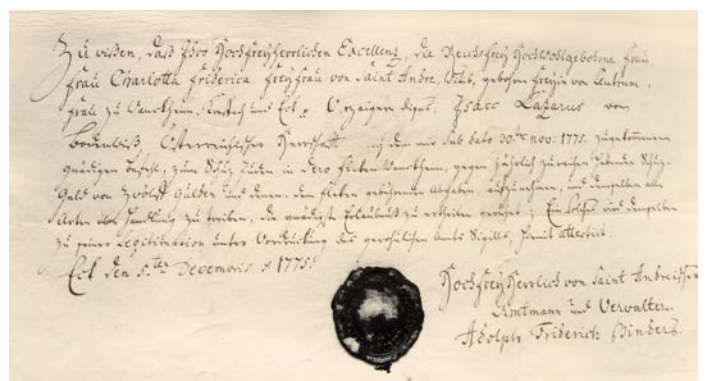 Zu wißen, daß Ihro Hochfreyherrlichen Excellenz, die Reichsfrey Hochwohlgebohrne Frau,
Frau Charlotta Friderica Freyfrau von Saint Andre, Wittib, gebohrne Freyin von Leutrum,
Frau zu Wanckheim, Kreßbach und Eck p. Vorzeigern dieses, Isacc Lazarus von
Oesterreichischer Herrschafft, nach dem mir sub dato 30ten nov: 1775. zugekommenen
gnädigen befehl, zum Schuz Juden in dero flecken Wanckheim, gegen jährlich zu reichen habende Schuz-
Geld von Zwölff Gulden und denen, dem flecken gebührenden Abgaben, aufzunehmen, und demselben alle
Arten Handlung zu treiben, die gnädigste Erlaubnuß zu ertheilen geruhet; Ein solches wird demselben
zu seiner Legitimation unter Vordruckung des gewohnlichen Amts Sigills, hiemit attestirt.
Eck den 5.ten Decembris 1775.
Hochfreyherrlich von Saint Andreischer
Amtmann und Verwalter.
Adolph Friderich